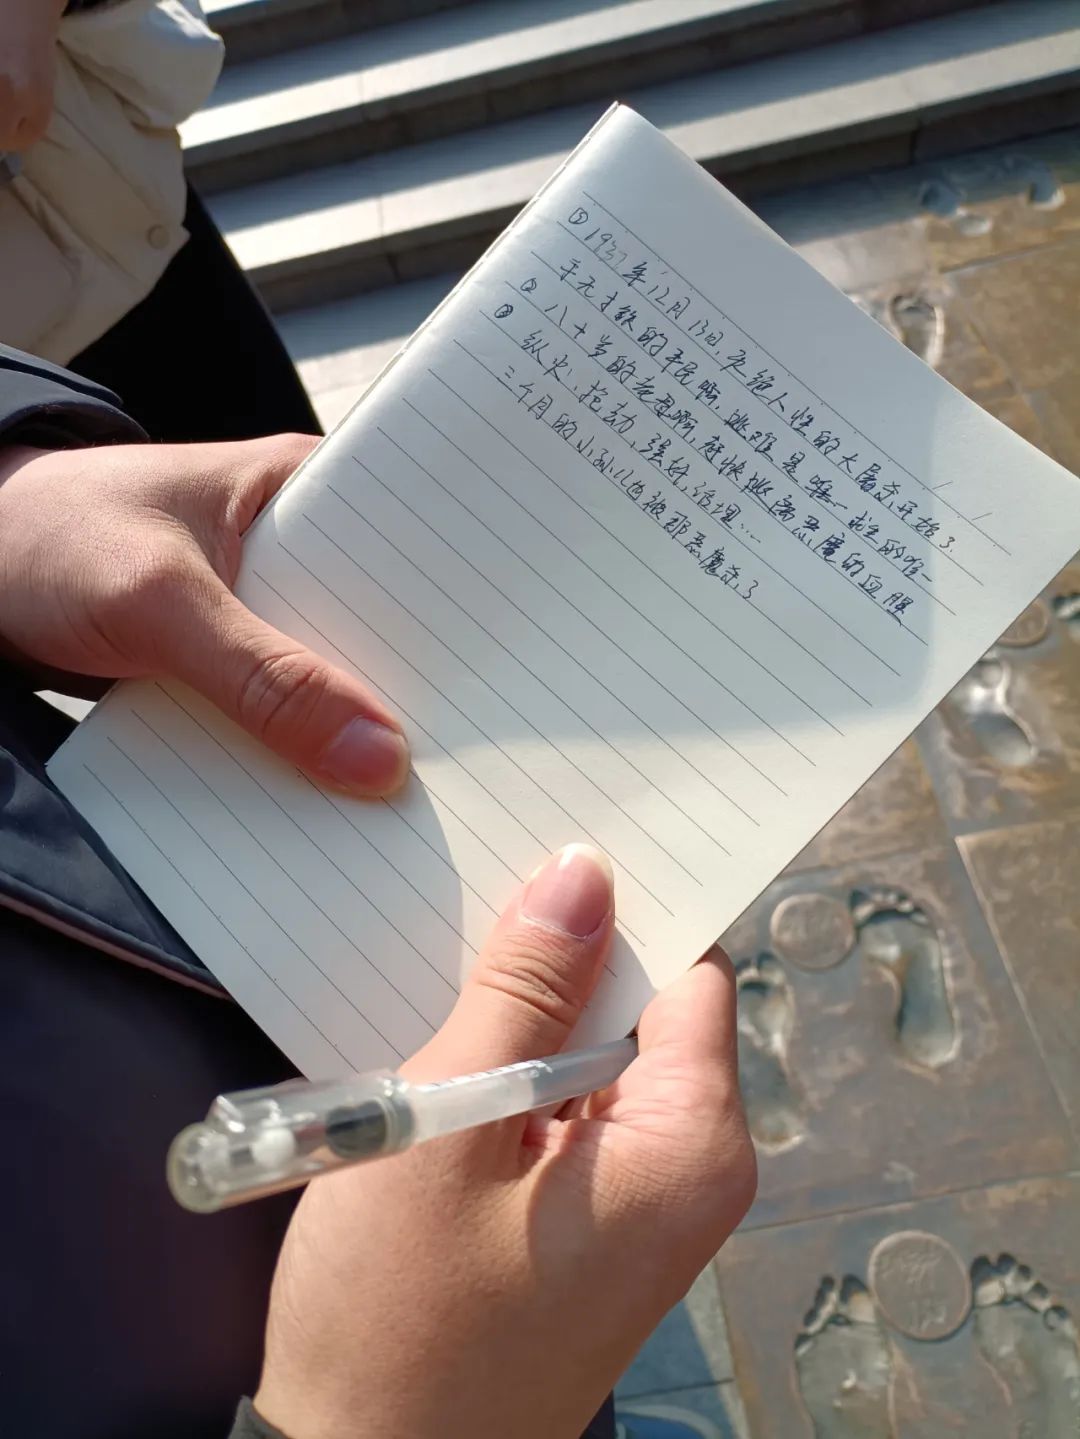 ① 1937年12月13日,灭绝人性的大屠杀开始了.
手无寸铁的平民啊,逃难是唯一求生的唯一
② 八十岁的老母啊,赶快逃离恶魔的血腥
③ 纵火、抢劫、强奸、活埋…
三个月的小孙儿也被那恶魔杀了